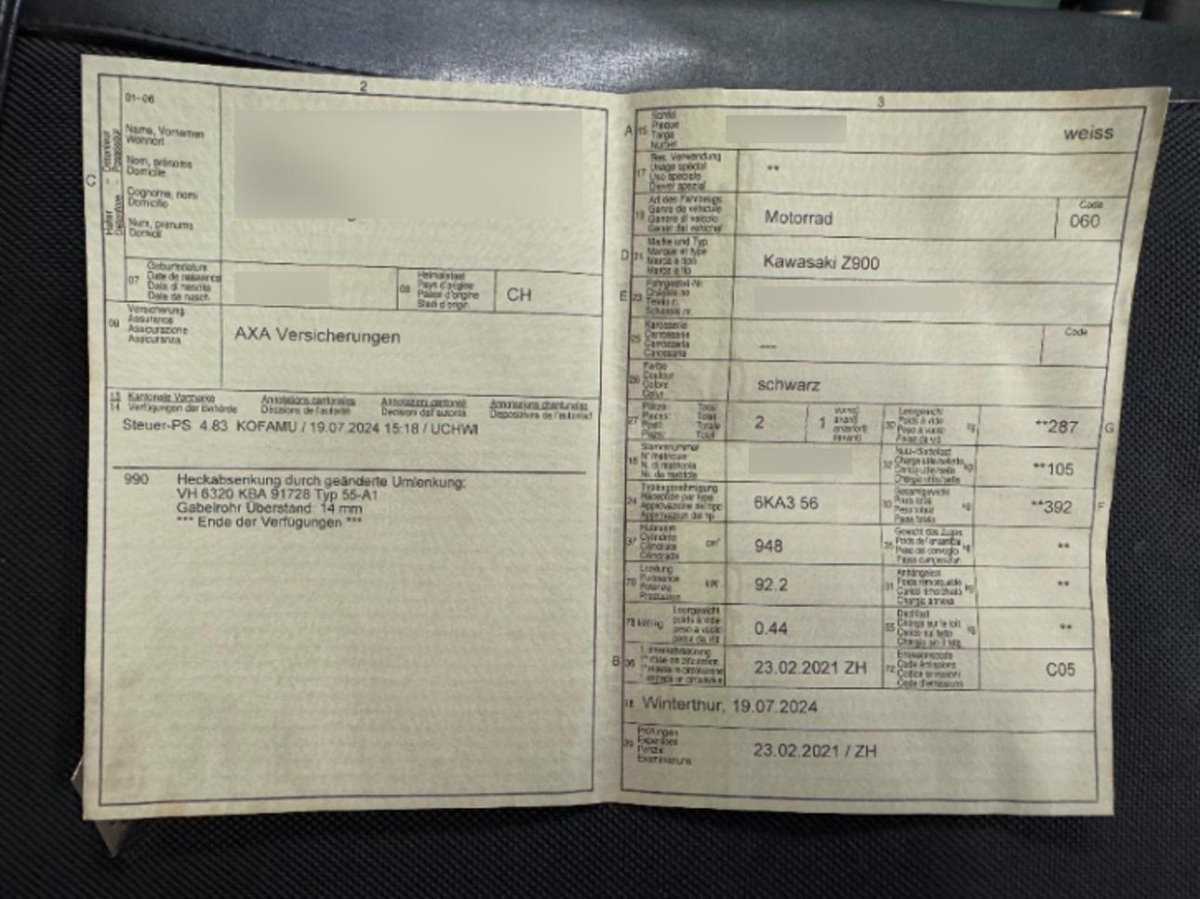 2
01-06
Name, Vornamen
Wohnort
Nom, prénoms
Domicile
Cognome, nomi
Domicilio
Num, prenums
Domicil
C
07
Geburtsdatum
Date de naissance
Data di nascita
Data da nasch.
08
Heimatstaat
Pays d'origine
Paese d'origine
Stadi d'origin
CH
09
Versicherung
Assurance
Assicurazione
Assicuranza
AXA Versicherungen
13 Kantonale Vermerke Annotations cantonales Annotazioni cantonali Annotaziuns chantunalas
14 Verfügungen der Behörde Décisions de l'autorité Decisioni dell'autorità Disposiziuns da l'autoritad
Steuer-PS 4.83 KOFAMU / 19.07.2024 15:18 / UCHWI
990 Heckabsenkung durch geänderte Umlenkung:
VH 6320 KBA 91728 Typ 55-A1
Gabelrohr Überstand: 14 mm
*** Ende der Verfügungen ***
3
A 15 Schild
Plaque
Targa
Numer
weiss
17 Bes. Verwendung
Usage spécial
Uso speciale
Diever spezial
**
19 Art des Fahrzeugs
Genre de véhicule
Genere di veicolo
Gener dal vehichel
Motorrad
Code
060
D 21 Marke und Typ
Marque et type
Marca e tipo
Marca e tip
Kawasaki Z900
E 23 Fahrgestell-Nr.
Châssis no
Telaio n.
Schassis nr.
25 Karosserie
Carrosserie
Carrozzeria
Carossaria
---
Code
26 Farbe
Couleur
Colore
Colur
schwarz
27 Plätze: Total
Places: Total
Posti: Totale
Plazs: Total
2
1
30 Leergewicht
Poids à vide
Peso a vuoto
Paisa da vid
kg
**287
G
18 Stammnummer
N° matricule
N. di matricola
Nr. da matricla
32 Nutz-/Sattellast
kg
**105
24 Typengenehmigung
Réception par type
Approvazione del tipo
Approvaziun dal tip
6KA3 56
33 Gesamtgewicht
Poids total
Peso totale
Paisa totala
kg
**392
F
37 Hubraum
Cylindrée
Cilindrata
Cilindrada
cm³
948
35 Gewicht des Zuges
Poids de l'ensemble
Peso del convoglio
kg
**
76 Leistung
Puissance
Potenza
Prestaziun
kW
92.2
31 Anhängelast
kg
**
78 kW/kg Leergewicht
poids à vide
peso a vuoto
paisa da vid
0.44
55 Dachlast
Charge sur le toit
Carico sul tetto
kg
**
B 36 1. Inverkehrsetzung
23.02.2021 ZH
72 Emissionscode
Code émissions
Codice emissioni
Code d'emissiuns
C05
38 Winterthur, 19.07.2024
39 Prüfungen
Expertises
Perizie
Examinaziuns
23.02.2021 / ZH